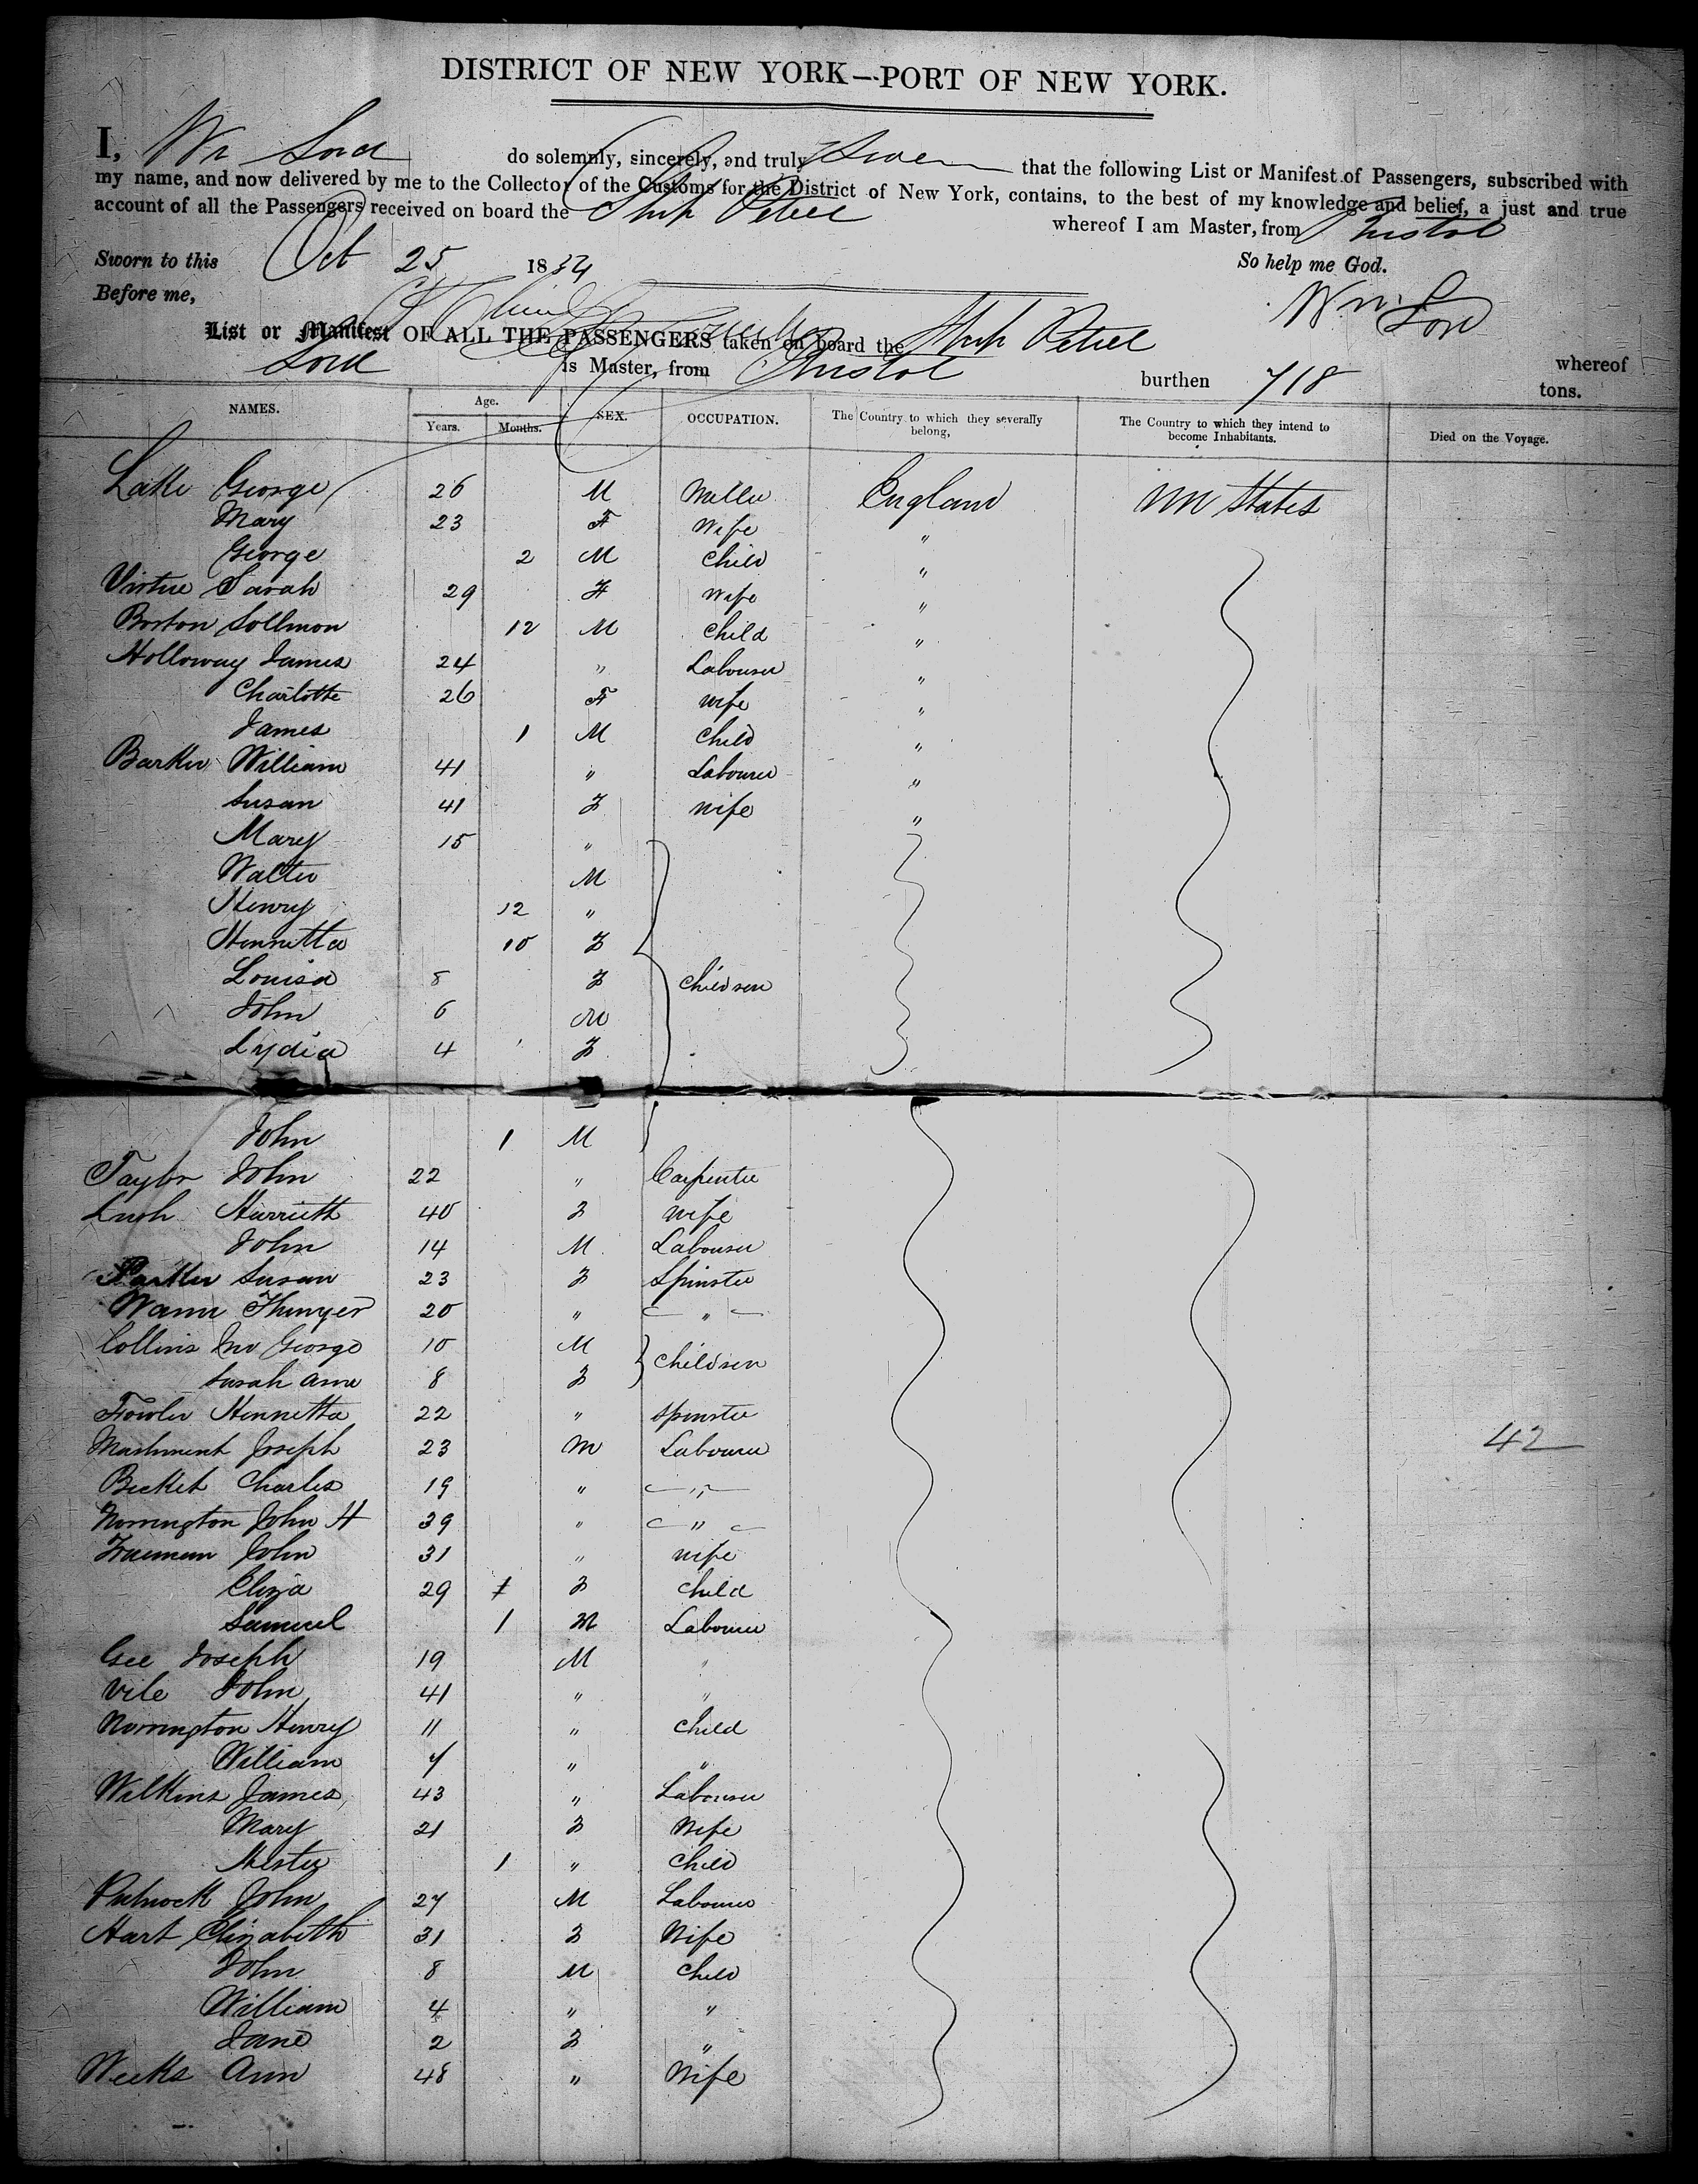 DISTRICT OF NEW YORK—PORT OF NEW YORK.
I, Wm Lord do solemnly, sincerely, and truly Swear that the following List or Manifest of Passengers, subscribed with
my name, and now delivered by me to the Collector of the Customs for the District of New York, contains, to the best of my knowledge and belief, a just and true
account of all the Passengers received on board the Ship Petrel whereof I am Master, from Bristol
Sworn to this Oct 25 1854 So help me God.
Before me, Wm Lord
List or Manifest OF ALL THE PASSENGERS taken on board the Ship Petrel whereof
Lord is Master, from Bristol burthen 718 tons.
NAMES. Age. Years. Months. SEX. OCCUPATION. The Country to which they severally belong, The Country to which they intend to become Inhabitants. Died on the Voyage.
Lake George 26 M Miller England Un States
Mary 23 F Wife "
George 2 M Child "
Virtue Sarah 29 F Wife "
Borton Sollmon 12 M Child "
Holloway James 24 " Labourer "
Charlotte 26 F Wife "
James 1 M Child "
Barker William 41 " Labourer "
Susan 41 F Wife "
Mary 15 "
Walter M
Henry 12 "
Henrietta 10 F
Louisa 8 F Children
John 6 M
Lydia 4 F
John 1 M
Taylor John 22 " Carpenter
Lush Harrieth 40 F Wife
John 14 M Labourer
Parker Susan 23 F Spinster
20 " "
Collins Jno George 10 M Children
Sarah Ann 8 F
Fowler Henrietta 22 " Spinster
Mashment Joseph 23 M Labourer 42
Becket Charles 19 " "
Norrington John H 39 " "
Freeman John 31 " Wife
Eliza 29 F Child
Samuel 1 M Labourer
Gee Joseph 19 M "
Vile John 41 " "
Norrington Henry 11 " Child
William 7 " "
Wilkins James 43 " Labourer
Mary 21 F Wife
Hester 1 " Child
John 27 M Labourer
Hart Elizabeth 31 F Wife
John 8 M Child
William 4 " "
Jane 2 F "
Weeks Ann 48 " Wife